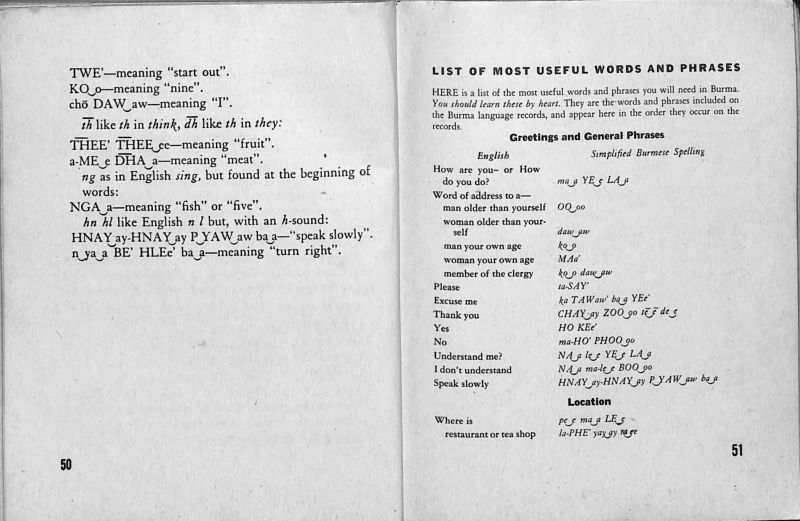 TWE’—meaning “start out”.
KO‿o—meaning “nine”.
chō DAW‿aw—meaning “I”.
t͞h like th in think, d͞h like th in they:
T͞HEE’ T͞HEE‿ee—meaning “fruit”.
a-ME‿e D͞HA‿a—meaning “meat”.
ng as in English sing, but found at the beginning of
words:
NGA‿a—meaning “fish” or “five”.
hn hl like English n l but, with an h-sound:
HNAY‿ay-HNAY‿ay P‿YAW‿aw ba‿a—“speak slowly”.
n‿ya‿a BE’ HLEe’ ba‿a—meaning “turn right”.
50
LIST OF MOST USEFUL WORDS AND PHRASES
HERE is a list of the most useful words and phrases you will need in Burma.
You should learn these by heart. They are the words and phrases included on
the Burma language records, and appear here in the order they occur on the
records.
Greetings and General Phrases
English Simplified Burmese Spelling
How are you– or How
do you do? ma‿a YE‿e LA‿a
Word of address to a—
man older than yourself OO‿oo
woman older than your-
self daw‿aw
man your own age ko‿o
woman your own age MAa’
member of the clergy ko‿o daw‿aw
Please ta-SAY’
Excuse me ka TAWaw’ ba‿a YEe’
Thank you CHAY‿ay ZOO‿oo de‿e
Yes HO KEe’
No ma-HO’ PHOO‿oo
Understand me? NA‿a le‿e YE‿e LA‿a
I don’t understand NA‿a ma-le‿e BOO‿oo
Speak slowly HNAY‿ay-HNAY‿ay P‿YAW‿aw ba‿a
Location
Where is pe‿e ma‿a LE‿e
restaurant or tea shop la-PHE’ yay‿ay
51